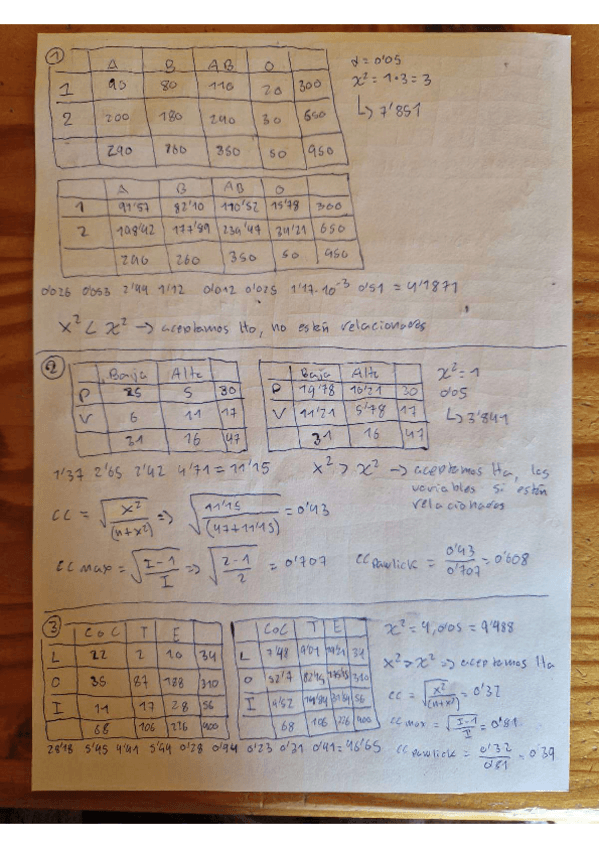 1
A B AB O
1 90 80 110 20 300
2 200 180 240 30 650
290 260 350 50 950
α = 0'05
x² = 1·3 = 3
↳ 7'851
A B AB O
1 91'57 82'10 110'52 15'78 300
2 198'42 177'89 239'47 34'21 650
290 260 350 50 950
0'026 0'053 2'44 1'12 0'012 0'025 1'17·10⁻³ 0'51 = 4'1871
x² < x² → aceptamos Ho, no están relacionados
2
Baja Alta
P 25 5 30
V 6 11 17
31 16 47
Baja Alta
P 19'78 10'21 30
V 11'21 5'78 17
31 16 47
x² = 1
0'05
↳ 3'841
1'37 2'65 2'42 4'71 = 11'15
x² > x² → aceptamos Ha, las
variables si están
relacionadas
CC = √x²/(n+x²) => √11'15/(47+11'15) = 0'43
CC max = √I-1/I => √2-1/2 = 0'707
CC Pawlick = 0'43/0'707 = 0'608
3
CoC T E
L 22 2 10 34
O 35 87 188 310
I 11 17 28 56
68 106 226 400
CoC T E
L 34
O 52'7 310
I 9'52 56
68 106 226 400
x² = 4, 0'05 = 9'488
x² > x² => aceptamos Ha
CC = √x²/(n+x²) = 0'32
CC max = √I-1/I = 0'81
CC Pawlick = 0'32/0'81 = 0'39
28'18 5'45 4'41 5'44 0'28 0'94 0'23 0'31 0'41 = 46'65